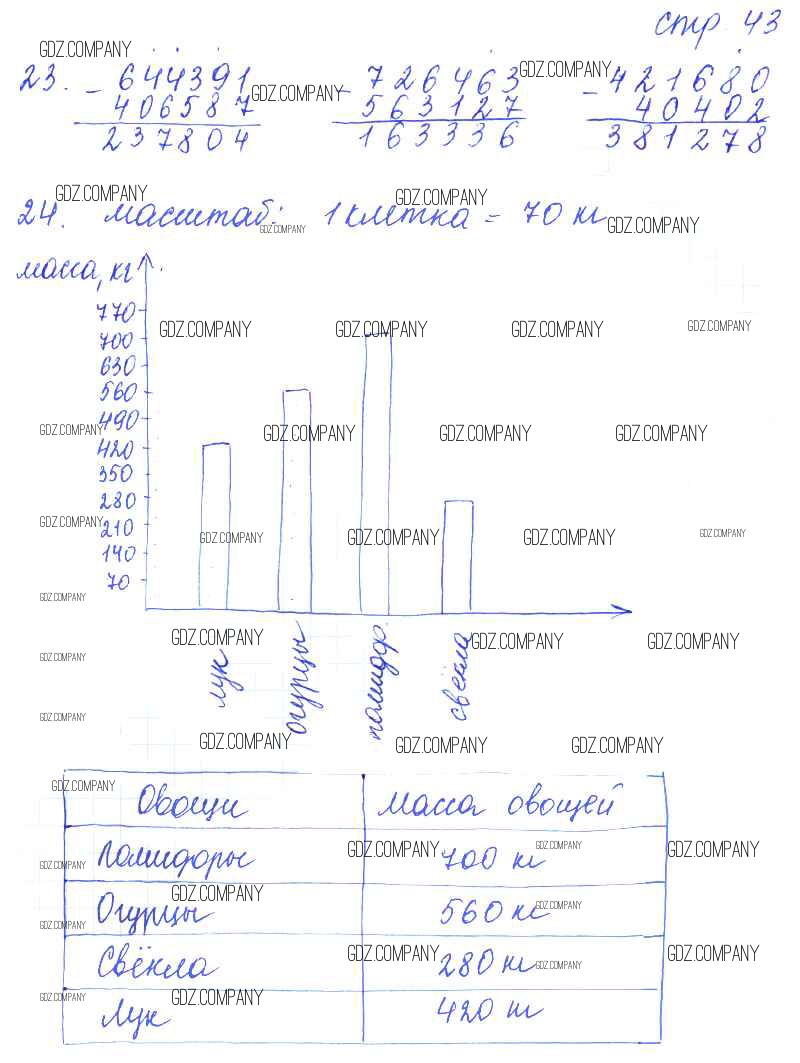 стр 43
GDZ.COMPANY
23. - 644391 - 726463 - 421680
GDZ.COMPANY GDZ.COMPANY
406587 563127 40402
237804 163336 381278
GDZ.COMPANY GDZ.COMPANY
24. масштаб: 1 клетка = 70 кг
GDZ.COMPANY GDZ.COMPANY
масса, кг
770
GDZ.COMPANY GDZ.COMPANY GDZ.COMPANY GDZ.COMPANY
700
630
560
490
GDZ.COMPANY GDZ.COMPANY GDZ.COMPANY GDZ.COMPANY
420
350
280
210
GDZ.COMPANY GDZ.COMPANY GDZ.COMPANY GDZ.COMPANY GDZ.COMPANY
140
70
GDZ.COMPANY
GDZ.COMPANY GDZ.COMPANY GDZ.COMPANY
GDZ.COMPANY
лук огурцы помидор. свёкла
GDZ.COMPANY
GDZ.COMPANY GDZ.COMPANY GDZ.COMPANY
GDZ.COMPANY
Овощи масса овощей
Помидоры 700 кг
GDZ.COMPANY GDZ.COMPANY GDZ.COMPANY GDZ.COMPANY
GDZ.COMPANY
Огурцы 560 кг
GDZ.COMPANY GDZ.COMPANY
Свёкла 280 кг
GDZ.COMPANY GDZ.COMPANY GDZ.COMPANY
GDZ.COMPANY GDZ.COMPANY
Лук 420 кг